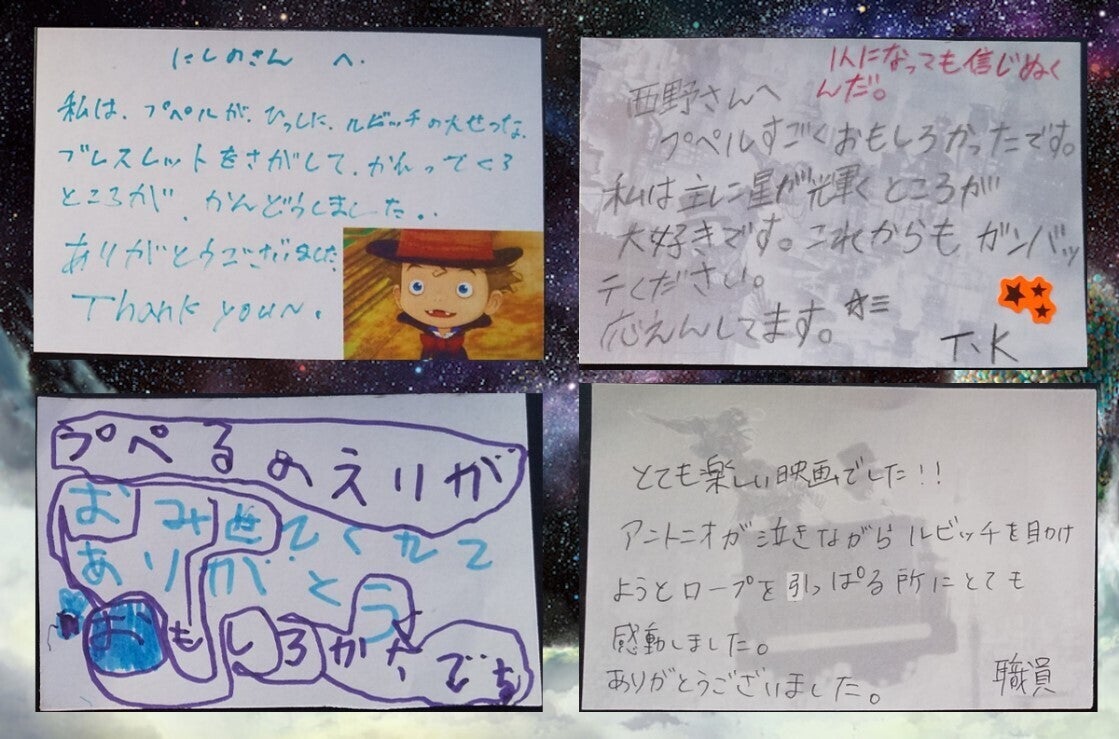 にしのさん へ.
私は、プペルが、ひっしに、ルビッチの大せつな、
ブレスレットをさがして、かえってくる
ところが、かんどうしました。.
ありがとうございました
Thank you~.
1人になっても信じぬく
んだ。
西野さんへ
プペルすごくおもしろかったです。
私は主に星が輝くところが
大好きです。これからもガンバッ
テください。
応えんしてます。☆≡
T.K
ぷぺるのえりが
おみせてくれて
ありがとう
おもしろかたよ
でち
とても楽しい映画でした!!
アントニオが泣きながらルビッチを助け
ようとロープを引っぱる所にとても
感動しました。
ありがとうございました。
職員